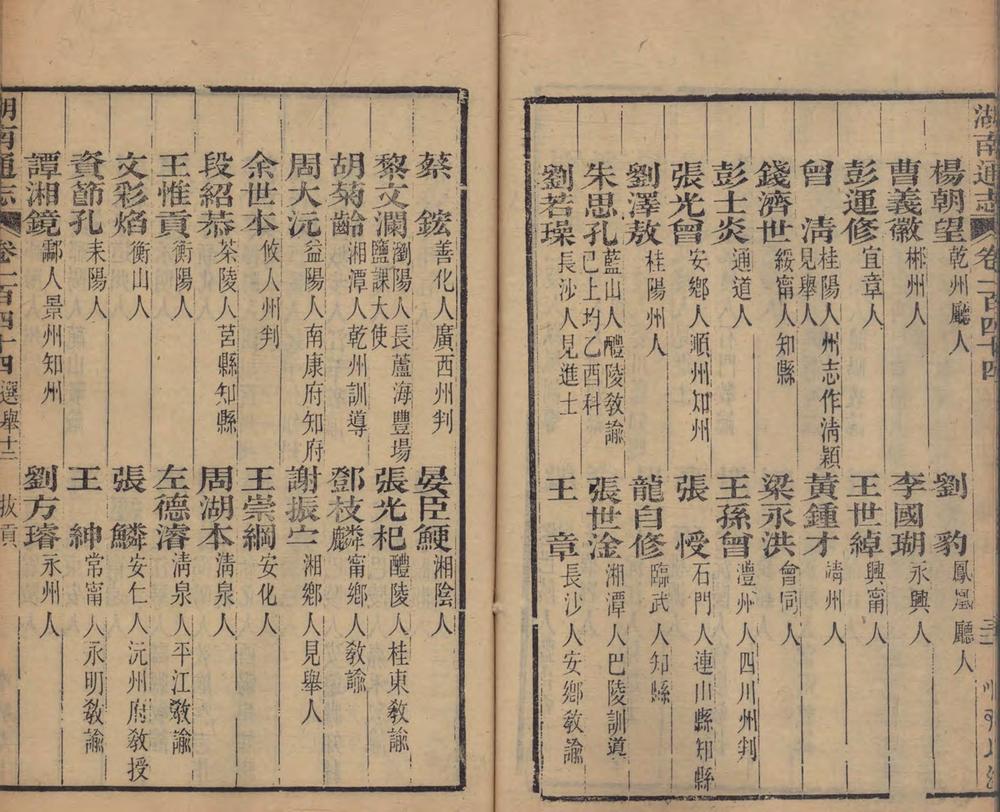 湖南通志 卷一百四十四
楊朝望 乾州廳人 劉豹 鳳凰廳人
曹義徽 郴州人 李國瑚 永興人
彭運修 宜章人 王世綽 興甯人
曾清 桂陽人州志作清穎見舉人 黃鍾才 靖州人
錢濟世 綏甯人知縣 梁永洪 會同人
彭士炎 通道人 王孫曾 澧州人四川州判
張光曾 安鄉人順州知州 張㥅 石門人連山縣知縣
劉澤敖 桂陽州人 龍自修 臨武人知縣
朱思孔 藍山人醴陵教諭已上均乙酉科 張世淦 湘潭人巴陵訓道
劉若璪 長沙人見進士 王章 長沙人安鄉教諭
蔡鋐 善化人廣西州判 晏臣鯁 湘陰人
黎文瀾 瀏陽人長蘆海豐場鹽課大使 張光杞 醴陵人桂東教諭
胡菊齡 湘潭人乾州訓導 鄧枝麟 甯鄉人教諭
周大沅 益陽人南康府知府 謝振定 湘鄉人見舉人
余世本 攸人州判 王崇綱 安化人
段紹恭 茶陵人莒縣知縣 周湖本 清泉人
王惟貢 衡陽人 左德濬 清泉人平江教諭
文彩焰 衡山人 張鱗 安仁人沅州府教授
資節孔 耒陽人 王紳 常甯人永明教諭
譚湘鏡 酃人景州知州 劉方璿 永州人
湖南通志 卷一百四十四 選舉十二 拔貢